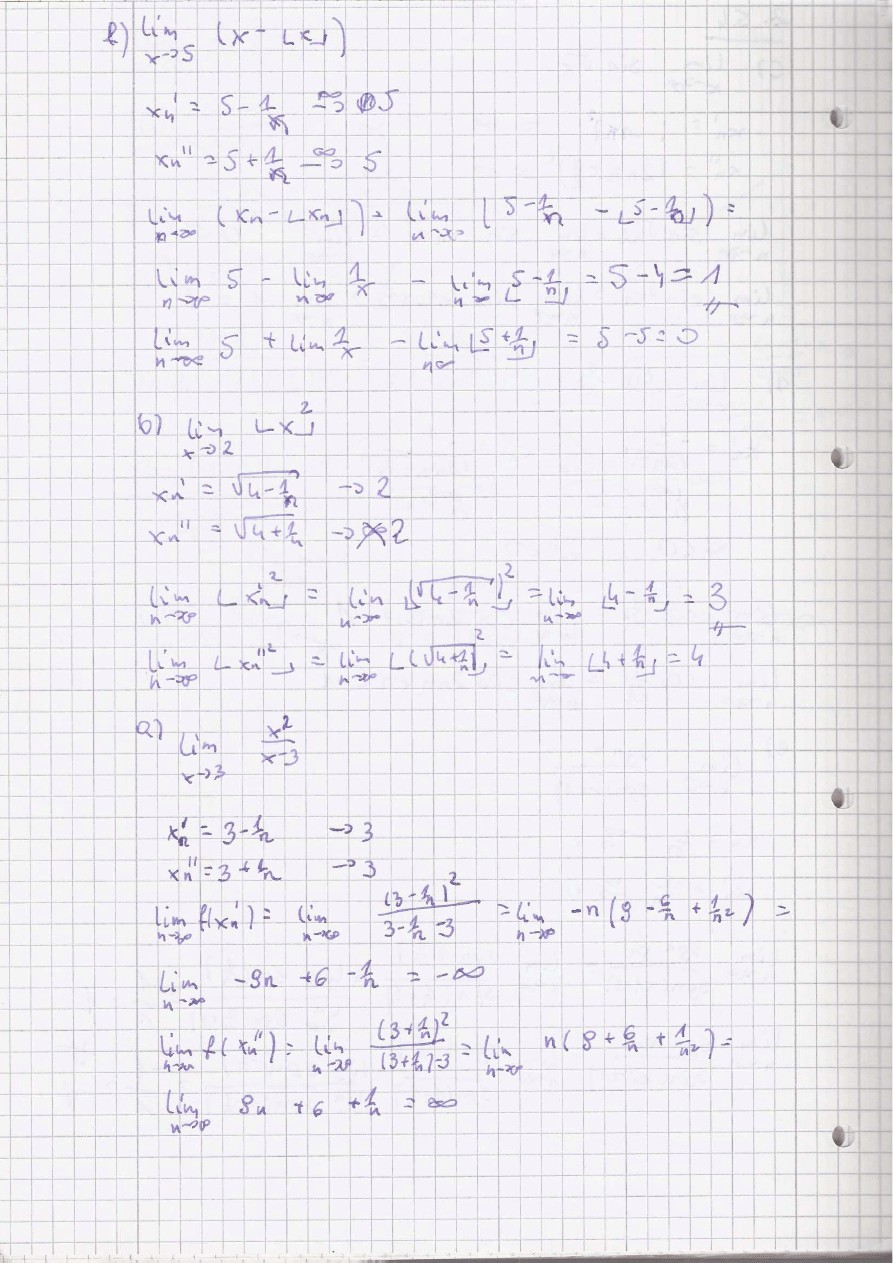 b) lim x→5 (x - ⌊x⌋)
xn' = 5 - 1/n ∞→ 5
xn'' = 5 + 1/n ∞→ 5
lim n→∞ (xn - ⌊xn⌋) = lim n→∞ (5 - 1/n - ⌊5 - 1/n⌋) =
lim n→∞ 5 - lim n→∞ 1/x - lim n→∞ ⌊5 - 1/n⌋ = 5 - 4 = 1
lim n→∞ 5 + lim 1/x - lim n∞ ⌊5 + 1/n⌋ = 5 - 5 = 0
b) lim x→2 ⌊x²⌋
xn' = √4 - 1/n → 2
xn'' = √4 + 1/n → 2
lim n→∞ ⌊xn'²⌋ = lim n→∞ ⌊(√4 - 1/n)²⌋ = lim n→∞ ⌊4 - 1/n⌋ = 3
lim n→∞ ⌊xn''²⌋ = lim n→∞ ⌊(√4 + 1/n)²⌋ = lim n→∞ ⌊4 + 1/n⌋ = 4
a) lim x→3 x²/x-3
xn' = 3 - 1/n → 3
xn'' = 3 + 1/n → 3
lim n→∞ f(xn') = lim n→∞ (3 - 1/n)²/3 - 1/n - 3 = lim n→∞ -n(9 - 6/n + 1/n²) =
lim n→∞ -9n + 6 - 1/n = -∞
lim n→∞ f(xn'') = lim n→∞ (3 + 1/n)²/(3 + 1/n) - 3 = lim n→∞ n(9 + 6/n + 1/n²) =
lim n→∞ 9n + 6 + 1/n = ∞